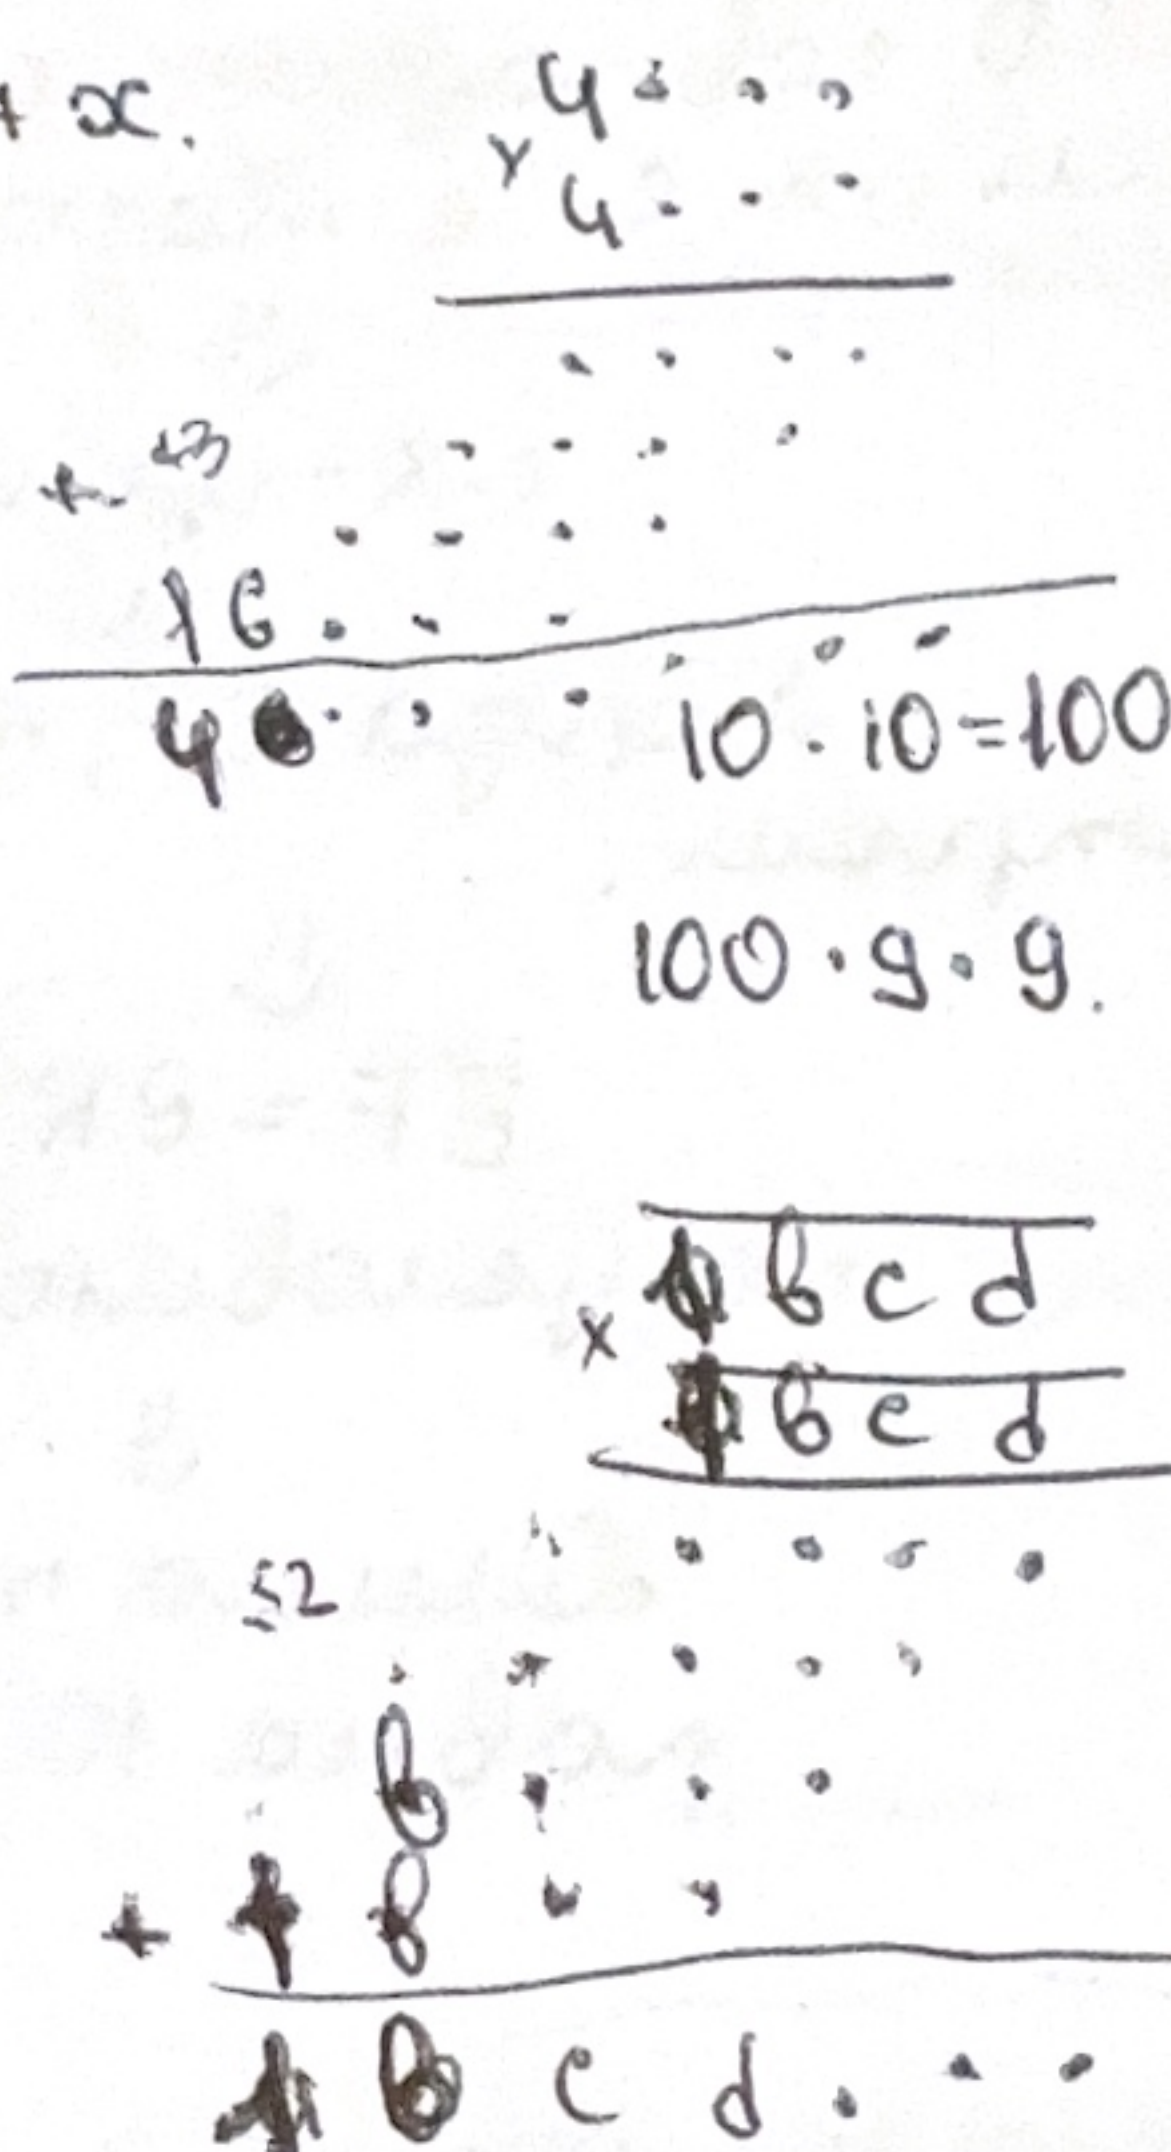 x.
4 . . .
× 4 . . .
. . . .
. . . .
. . . .
16 . . .
4 . . . . . .
10 · 10 = 100
100 · 9 · 9.
b c d
× b c d
. . . .
52
. . . . .
b . . .
+ 1 b . .
1 b c d . . .